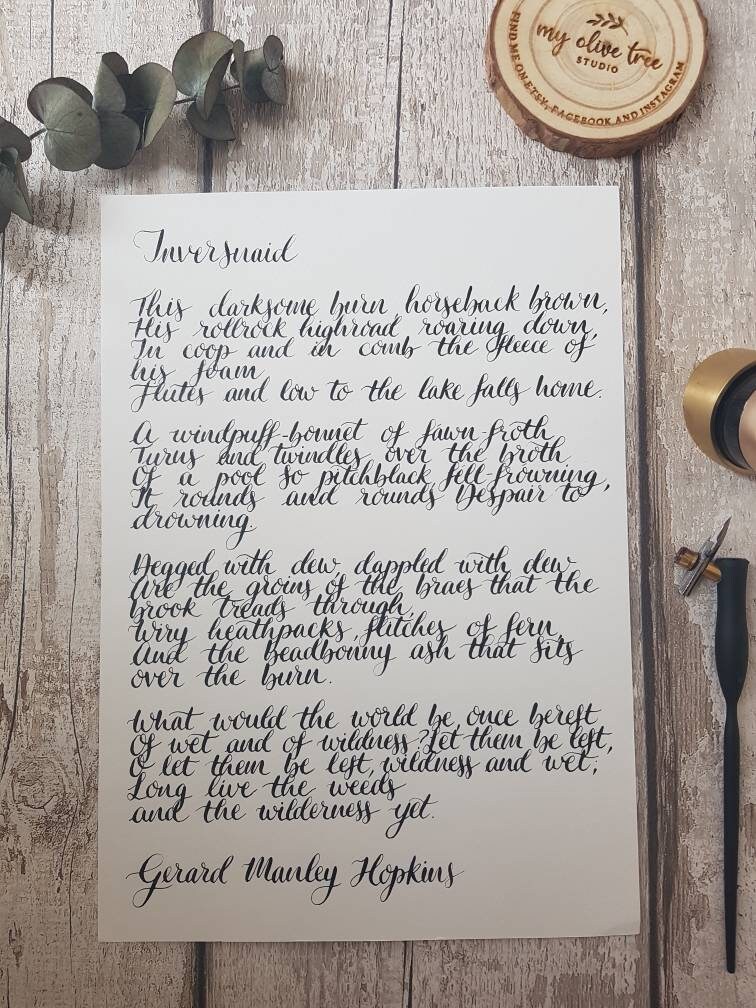 my olive tree
STUDIO
FIND ME ON ETSY, FACEBOOK AND INSTAGRAM
Inversnaid
This darksome burn horseback brown,
His rollrock highroad roaring down,
In coop and in comb the fleece of
his foam
Flutes and low to the lake falls home.
A windpuff-bonnet of fawn-froth
Turns and twindles over the broth
Of a pool so pitchblack fell-frowning,
It rounds and rounds Despair to
drowning.
Degged with dew dappled with dew
Are the groins of the braes that the
brook treads through,
Wiry heathpacks, flitches of fern,
And the beadbonny ash that sits
over the burn.
What would the world be, once bereft
Of wet and of wildness? Let them be left,
O let them be left, wildness and wet;
Long live the weeds
and the wilderness yet.
Gerard Manley Hopkins